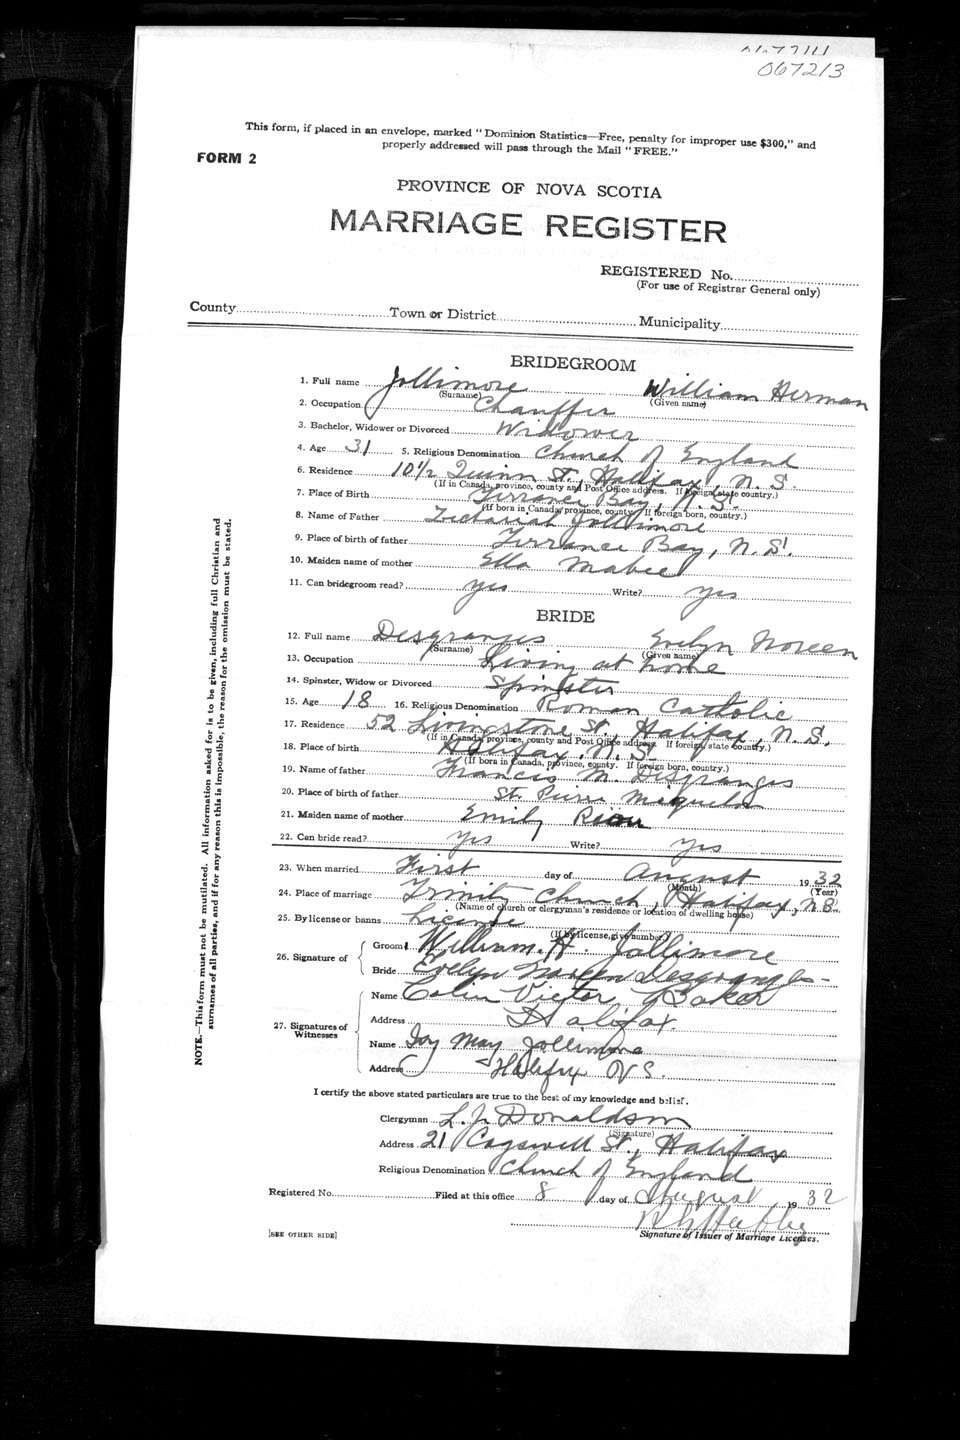 067213
This form, if placed in an envelope, marked "Dominion Statistics—Free, penalty for improper use $300," and
properly addressed will pass through the Mail "FREE."
FORM 2
PROVINCE OF NOVA SCOTIA
MARRIAGE REGISTER
REGISTERED No.
(For use of Registrar General only)
County Town or District Municipality
BRIDEGROOM
1. Full name Jollimore William Herman
(Surname) (Given name)
2. Occupation Chauffer
3. Bachelor, Widower or Divorced Widower
4. Age 31 5. Religious Denomination Church of England
6. Residence 10½ Quinn St., Halifax, N.S.
(If in Canada, province, county and Post Office address. If foreign, state country.)
7. Place of Birth Terrance Bay, N.S.
(If born in Canada, province, county. If foreign born, country.)
8. Name of Father Jollimore
9. Place of birth of father Terrance Bay, N.S.
10. Maiden name of mother Ella Mabee
11. Can bridegroom read? yes Write? yes
BRIDE
12. Full name Desgranges Evelyn Noreen
(Surname) (Given name)
13. Occupation Living at home
14. Spinster, Widow or Divorced Spinster
15. Age 18 16. Religious Denomination Roman Catholic
17. Residence 52 Livingstone St., Halifax, N.S.
(If in Canada, province, county and Post Office address. If foreign, state country.)
18. Place of birth Halifax, N.S.
(If born in Canada, province, county. If foreign born, country.)
19. Name of father Francis M. Desgranges
20. Place of birth of father St. Pierre Miquelon
21. Maiden name of mother Emily Riou
22. Can bride read? yes Write? yes
23. When married First day of August 1932
(Month) (Year)
24. Place of marriage Trinity Church, Halifax, N.S.
(Name of church or clergyman's residence or location of dwelling house)
25. By license or banns License
(If by license, give number.)
26. Signature of Groom William. H. Jollimore
Bride Evelyn Noreen Desgranges
27. Signatures of Witnesses
Name Colin Victor Baker
Address Halifax.
Name Ivy May Jollimore
Address Halifax N S.
I certify the above stated particulars are true to the best of my knowledge and belief.
Clergyman L. J. Donaldson
(Signature)
Address 21 Cogswell St., Halifax
Religious Denomination Church of England
Registered No. Filed at this office 8 day of August 1932
Signature of Issuer of Marriage Licenses.
[SEE OTHER SIDE]
NOTE.—This form must not be mutilated. All information asked for is to be given, including full Christian and
surnames of all parties, and if for any reason this is impossible, the reason for the omission must be stated.